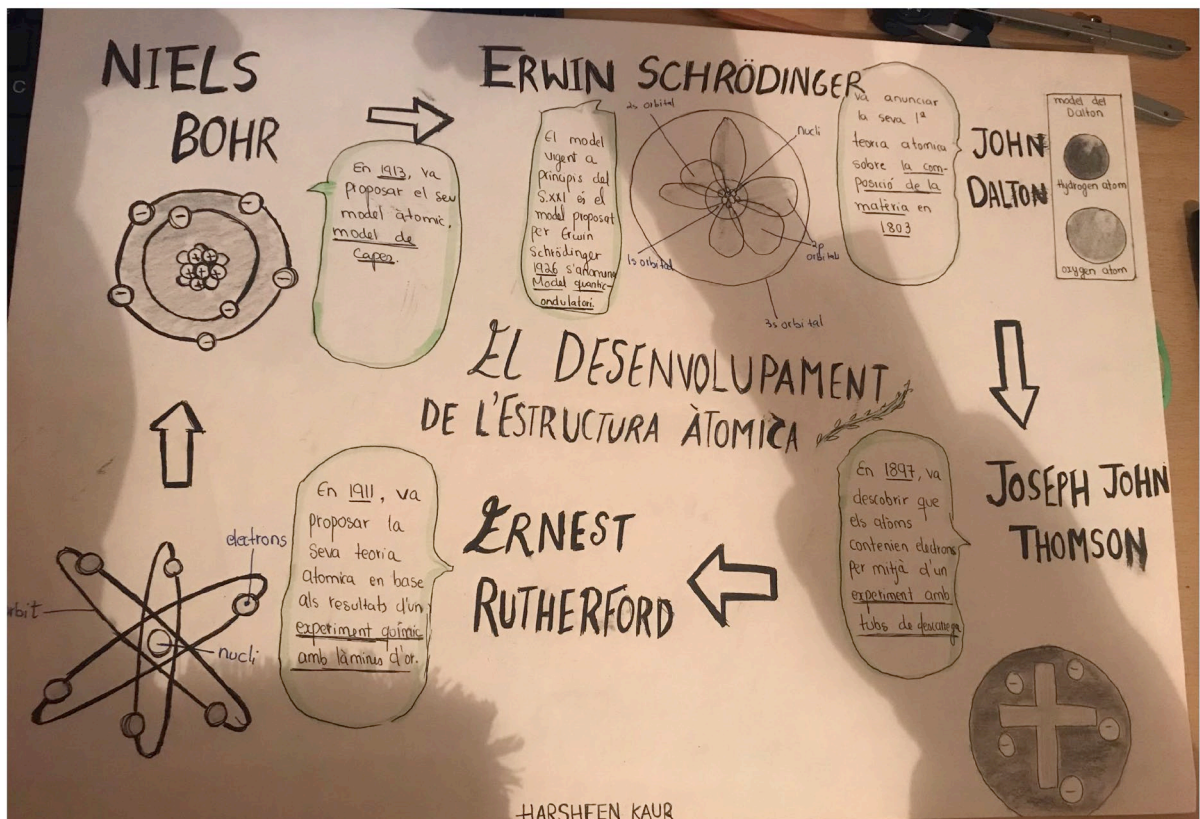 NIELS
BOHR
En 1913, va
proposar el seu
model atomic,
model de
Capes.
ERWIN SCHRÖDINGER
El model
vigent a
principis del
S.XXI és el
model proposat
per Erwin
Schrödinger
1926 s'anomena
Model quantic-
ondulatori.
2s orbital
nucli
1s orbital
2p
orbitals
3s orbital
va anunciar
la seva 1ª
teoria atomica
sobre la com-
posició de la
matèria en
1803
JOHN
DALTON
model del
Dalton
Hydrogen atom
oxygen atom
EL DESENVOLUPAMENT
DE L'ESTRUCTURA ÀTOMICA
JOSEPH JOHN
THOMSON
En 1897, va
descobrir que
els atòms
contenien electrons
per mitjà d'un
experiment amb
tubs de descarrega
ERNEST
RUTHERFORD
En 1911, va
proposar la
seva teoria
atomica en base
als resultats d'un
experiment químic
amb làmines d'or.
electrons
orbit
nucli
HARSHEEN KAUR